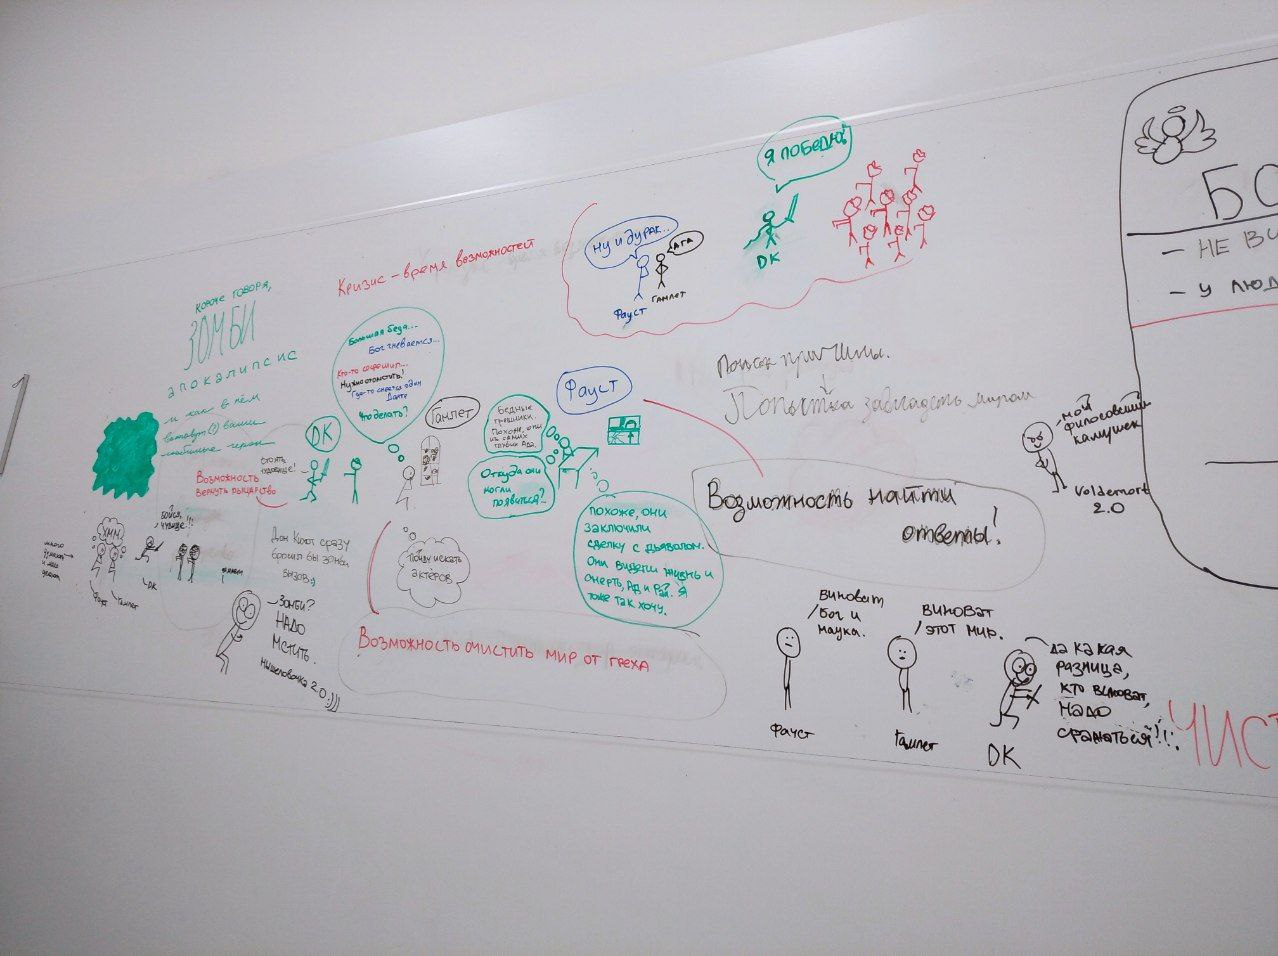 Короче говоря,
ЗОМБИ
апокалипсис
и как в нём
ваши
любимые герои
Кризис – время возможностей
Ну и дурак...
Ага
Фауст
Гамлет
Я победю!
DK
Большая беда...
Бог гневается...
Кто-то согрешил...
Нужно отомстить!
Где-то спрятся один
Данте
Что делать?
Гамлет
DK
Стоять
чудовище!
Возможность
вернуть рыцарство
Фауст
Бедные
грешники.
Похоже, они
из самих
глубин Ада.
Откуда они
могли
появиться?
Похоже, они
заключили
сделку с дьяволом.
Они видели жизнь и
смерть, Ад и Рай. Я
тоже так хочу.
Поиск причины.
Попытка завладеть миром
Возможность найти
ответы!
Пойду искать
актёров
Возможность очистить мир от греха
Хмм
Бойся,
чудище!!!
много
думают
и мало
делают
Фауст
Гамлет
DK
Дон Кихот сразу
бросил бы зомби
вызов:)
– Зомби?
Надо
мстить.
Мышеловочка 2.0:)))
Виноват
бог и
наука.
Фауст
Виноват
этот мир.
Гамлет
Да какая
разница,
кто виноват,
надо
сражаться!!!
DK
Мой
философский
камушек
Voldemort
2.0
– НЕ
– У